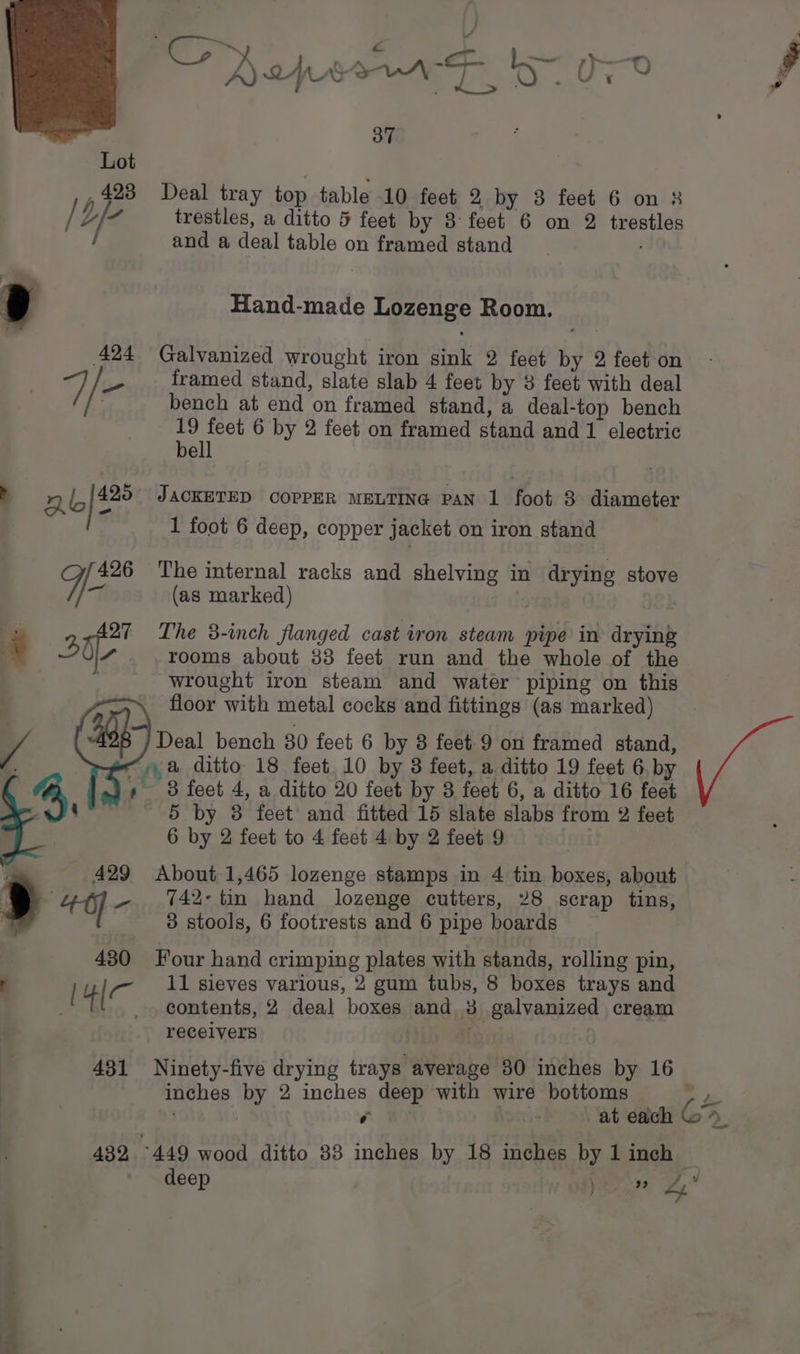 37
Lot
423 Deal tray top table 10 feet 2 by 3 feet 6 on 3
trestles, a ditto 5 feet by 3 feet 6 on 2 trestles
and a deal table on framed stand
Hand-made Lozenge Room.
424 Galvanized wrought iron sink 2 feet by 2 feet on
7/- framed stand, slate slab 4 feet by 3 feet with deal
bench at end on framed stand, a deal-top bench
19 feet 6 by 2 feet on framed stand and 1 electric
bell
26/- 425 JACKETED COPPER MELTING PAN 1 foot 3 diameter
1 foot 6 deep, copper jacket on iron stand
9/- 426 The internal racks and shelving in drying stove
(as marked)
427 The 3-inch flanged cast iron steam pipe in drying
rooms about 33 feet run and the whole of the
wrought iron steam and water piping on this
floor with metal cocks and fittings (as marked)
428 Deal bench 30 feet 6 by 3 feet 9 on framed stand,
a ditto 18 feet 10 by 3 feet, a ditto 19 feet 6 by
3 feet 4, a ditto 20 feet by 3 feet 6, a ditto 16 feet
5 by 3 feet and fitted 15 slate slabs from 2 feet
6 by 2 feet to 4 feet 4 by 2 feet 9
429 About 1,465 lozenge stamps in 4 tin boxes, about
46/- 742 tin hand lozenge cutters, 28 scrap tins,
3 stools, 6 footrests and 6 pipe boards
430 Four hand crimping plates with stands, rolling pin,
14/- 11 sieves various, 2 gum tubs, 8 boxes trays and
contents, 2 deal boxes and 3 galvanized cream
receivers
431 Ninety-five drying trays average 30 inches by 16
inches by 2 inches deep with wire bottoms
at each
432 449 wood ditto 33 inches by 18 inches by 1 inch
deep „